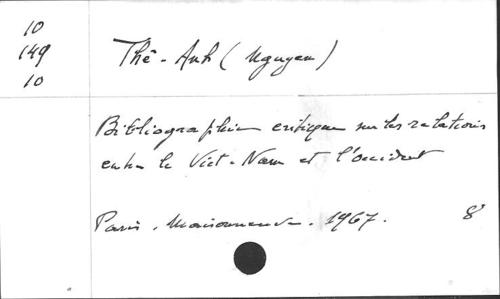 10
149
10
Thê-Anh (Nguyen)
Bibliographie critique sur les relations
entre le Viet-Nam et l'occident
Paris. Maisonneuve. 1967. 8°